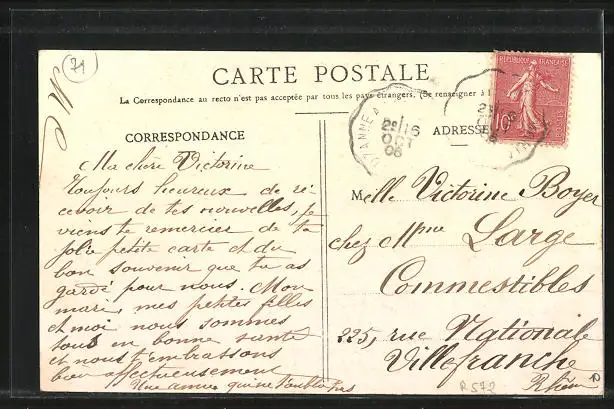 71
CARTE POSTALE
La Correspondance au recto n'est pas acceptée par tous les pays étrangers. (Se renseigner à l
RÉPUBLIQUE FRANÇAISE
10
CORRESPONDANCE
ADRESSE
16
OCT
06
Ma chère Victorine
Toujours heureux de re
cevoir de tes nouvelles, je
viens te remercier de ta
jolie petite carte et du
bon souvenir que tu as
gardé pour nous. Mon
mari, mes petites filles
et moi nous sommes
tous en bonne santé
et nous t'embrassons
bien affectueusement
Une amie qui ne t'oublie pas
Melle Victorine Boyer
chez Mme Large
Commestibles
225, rue Nationale
Villefranche
Rhône
R572